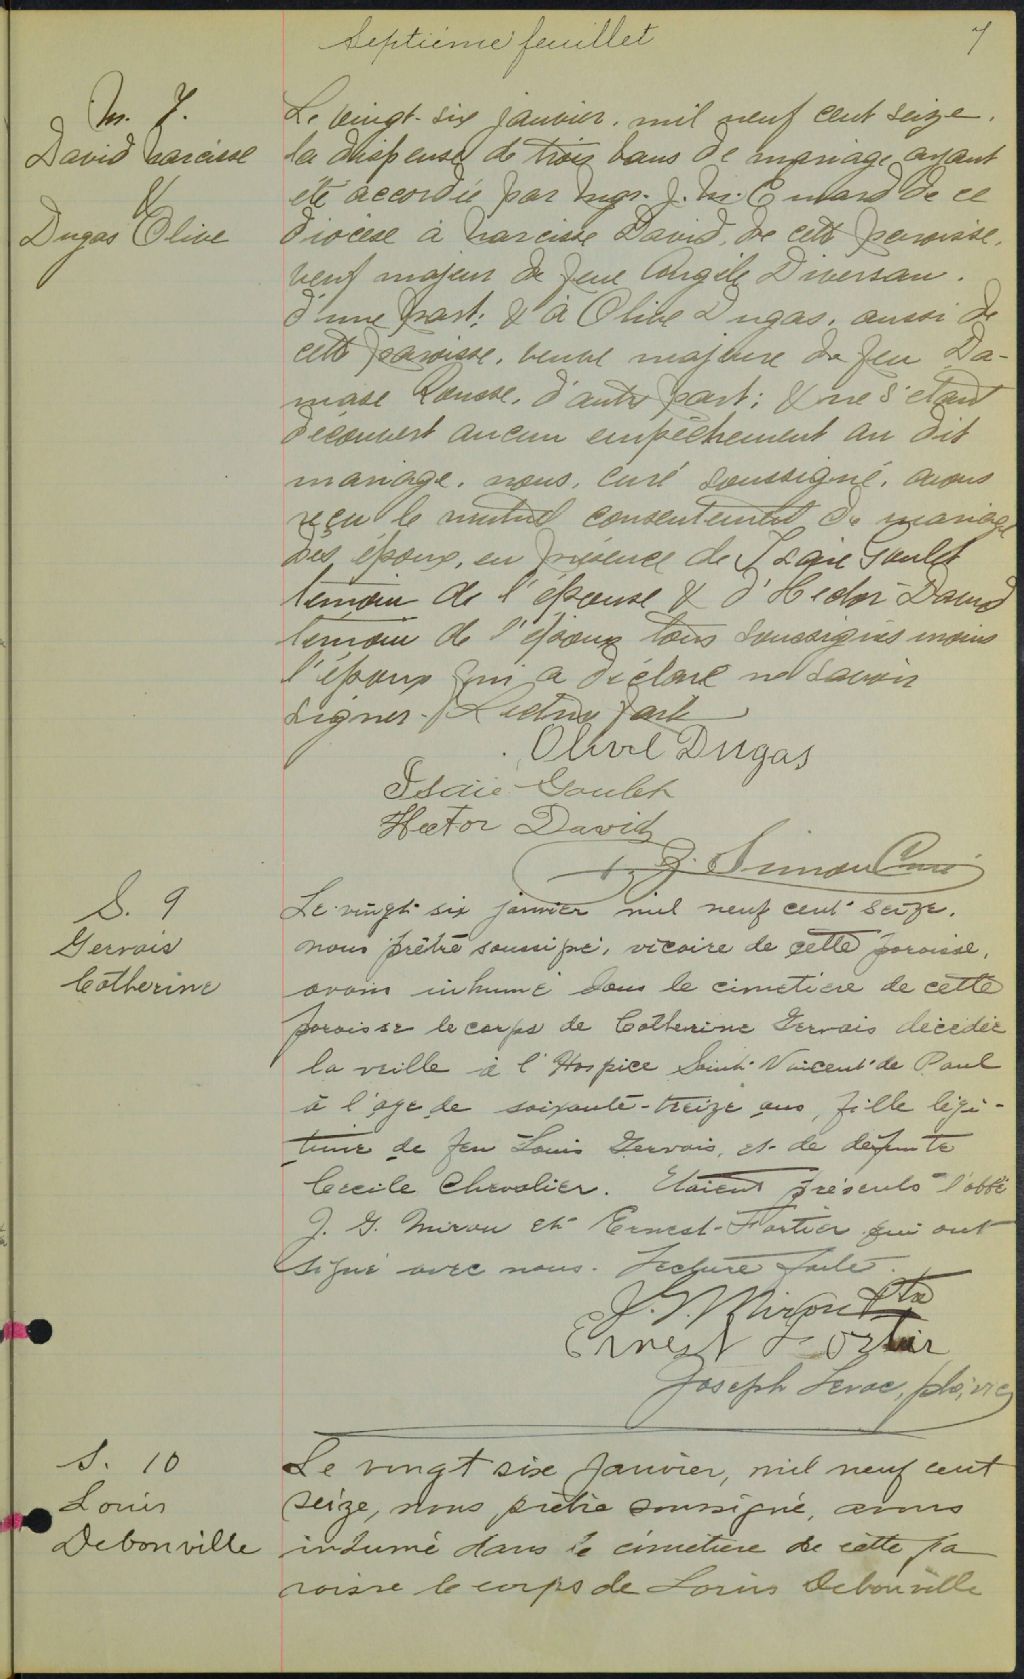 Septième feuillet
7
M. 7.
David Narcisse
&
Dugas Olive
Le vingt-six janvier, mil neuf cent seize,
la dispense de trois bans de mariage ayant
été accordée par Mgr. J. M. Emard de ce
diocèse à Narcisse David, de cette paroisse,
veuf majeur de feue Angèle
d'une part; & à Olive Dugas, aussi de
cette paroisse, veuve majeure de feu Da-
mase Rousse, d'autre part; & ne s'étant
découvert aucun empêchement au dit
mariage, nous, curé soussigné, avons
reçu le mutuel consentement de mariage
des époux, en présence de Isaïe Goulet
témoin de l'épouse & d'Hector David
témoin de l'époux tous soussignés moins
l'époux qui a déclaré ne savoir
signer. Lecture faite
Olivil Dugas
Isaïe Goulet
Hector David
J. Simon Curé
S. 9
Gervais
Catherine
Le vingt-six janvier mil neuf cent seize,
nous prêtre soussigné, vicaire de cette paroisse,
avons inhumé dans le cimetière de cette
paroisse le corps de Catherine Gervais décédée
la veille à l'Hospice Saint-Vincent de Paul
à l'age de soixante-treize ans, fille légi-
time de feu Louis Gervais, et de défunte
Cécile Chevalier. Etaient présents l'abbé
J. G. Mirou et Ernest Fortier qui ont
signé avec nous. Lecture faite.
J. G. Mirou Ptre
Ernest Fortier
Joseph Leroc, ptre, vic
S. 10
Louis
Debonville
Le vingt six Janvier, mil neuf cent
seize, nous prêtre soussigné, avons
inhumé dans le cimetière de cette pa
roisse le corps de Louis Debonville